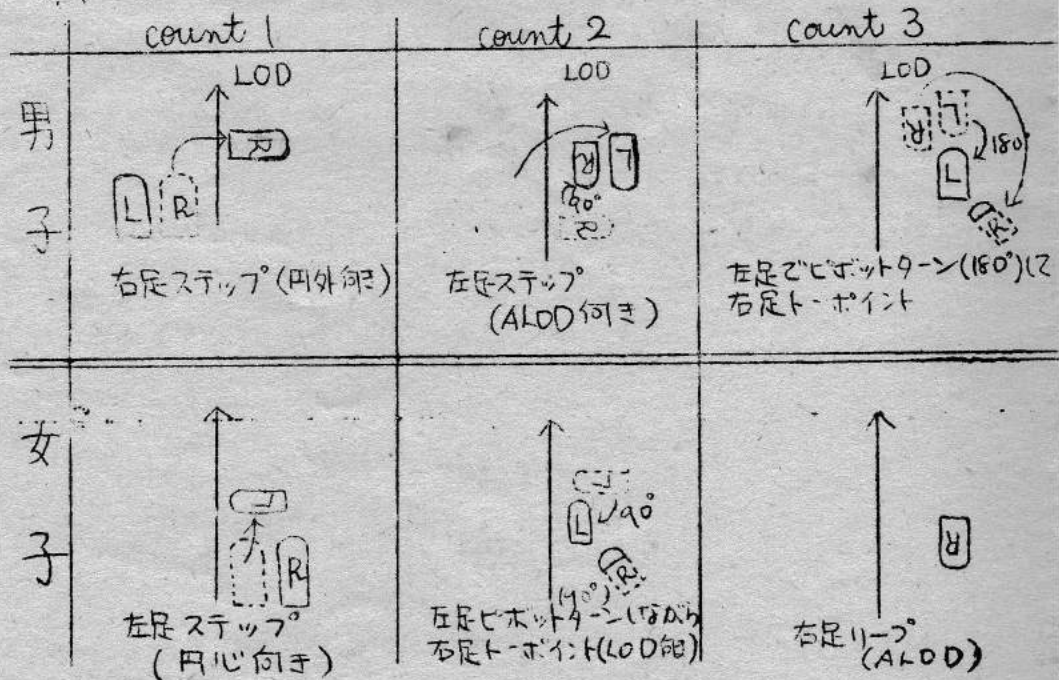 count 1
count 2
count 3
男子
LOD
R
L
R
右足ステップ(円外向き)
LOD
R
L
90°
R
左足ステップ
(ALOD向き)
LOD
R
L
180
L
R
左足でピボットターン(180°)して
右足トーポイント
女子
L
L
R
左足ステップ
(円心向き)
L
L
90°
R
(90°)
左足ピボットターンしながら
右足トーポイント(LOD向)
R
右足リープ
(ALOD)